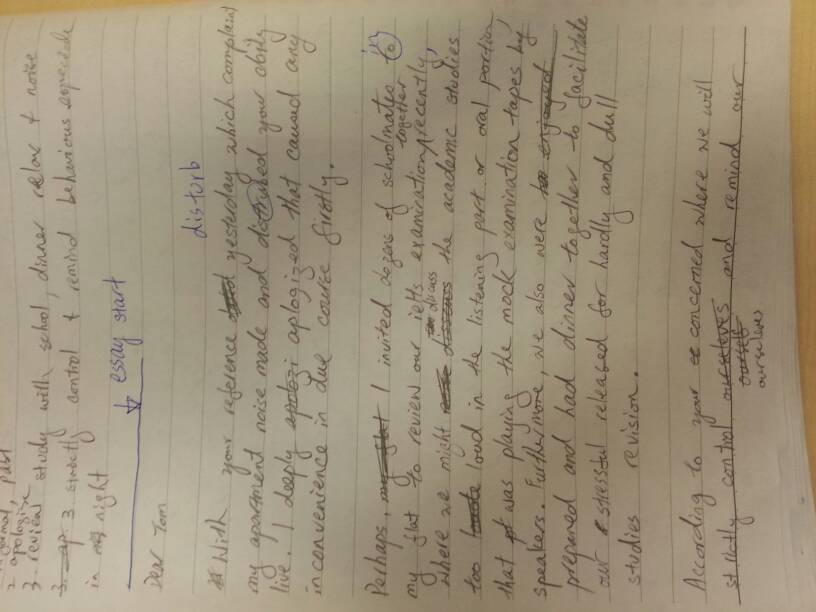 2 apologize
3. review study with school, dinner relax & noise
3 strictly control & remind behavious especiale
in night
essay start
Dear Tom
disturb
With your reference yesterday which complaint
my apartment noise made and distrubed your abily
live. I deeply aplogized that caused any
inconvenience in due course firstly.
Perhaps, I invited dozens of schoolmates in to
together
my flat to review our ielts examination recently,
discuss
where we might the academic studies
too loud in the listening part or oral portion
that was playing the mock examination tapes by
speakers. Furthermore, we also were
prepared and had dinner together to facilitate
our stressful released for hardly and dull
studies revision.
According to your concerned where we will
strictly control ourseleves and remind our
ourself
ourseleves